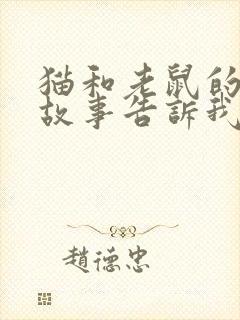 猫和老鼠的
故事告訴我
趙德忠